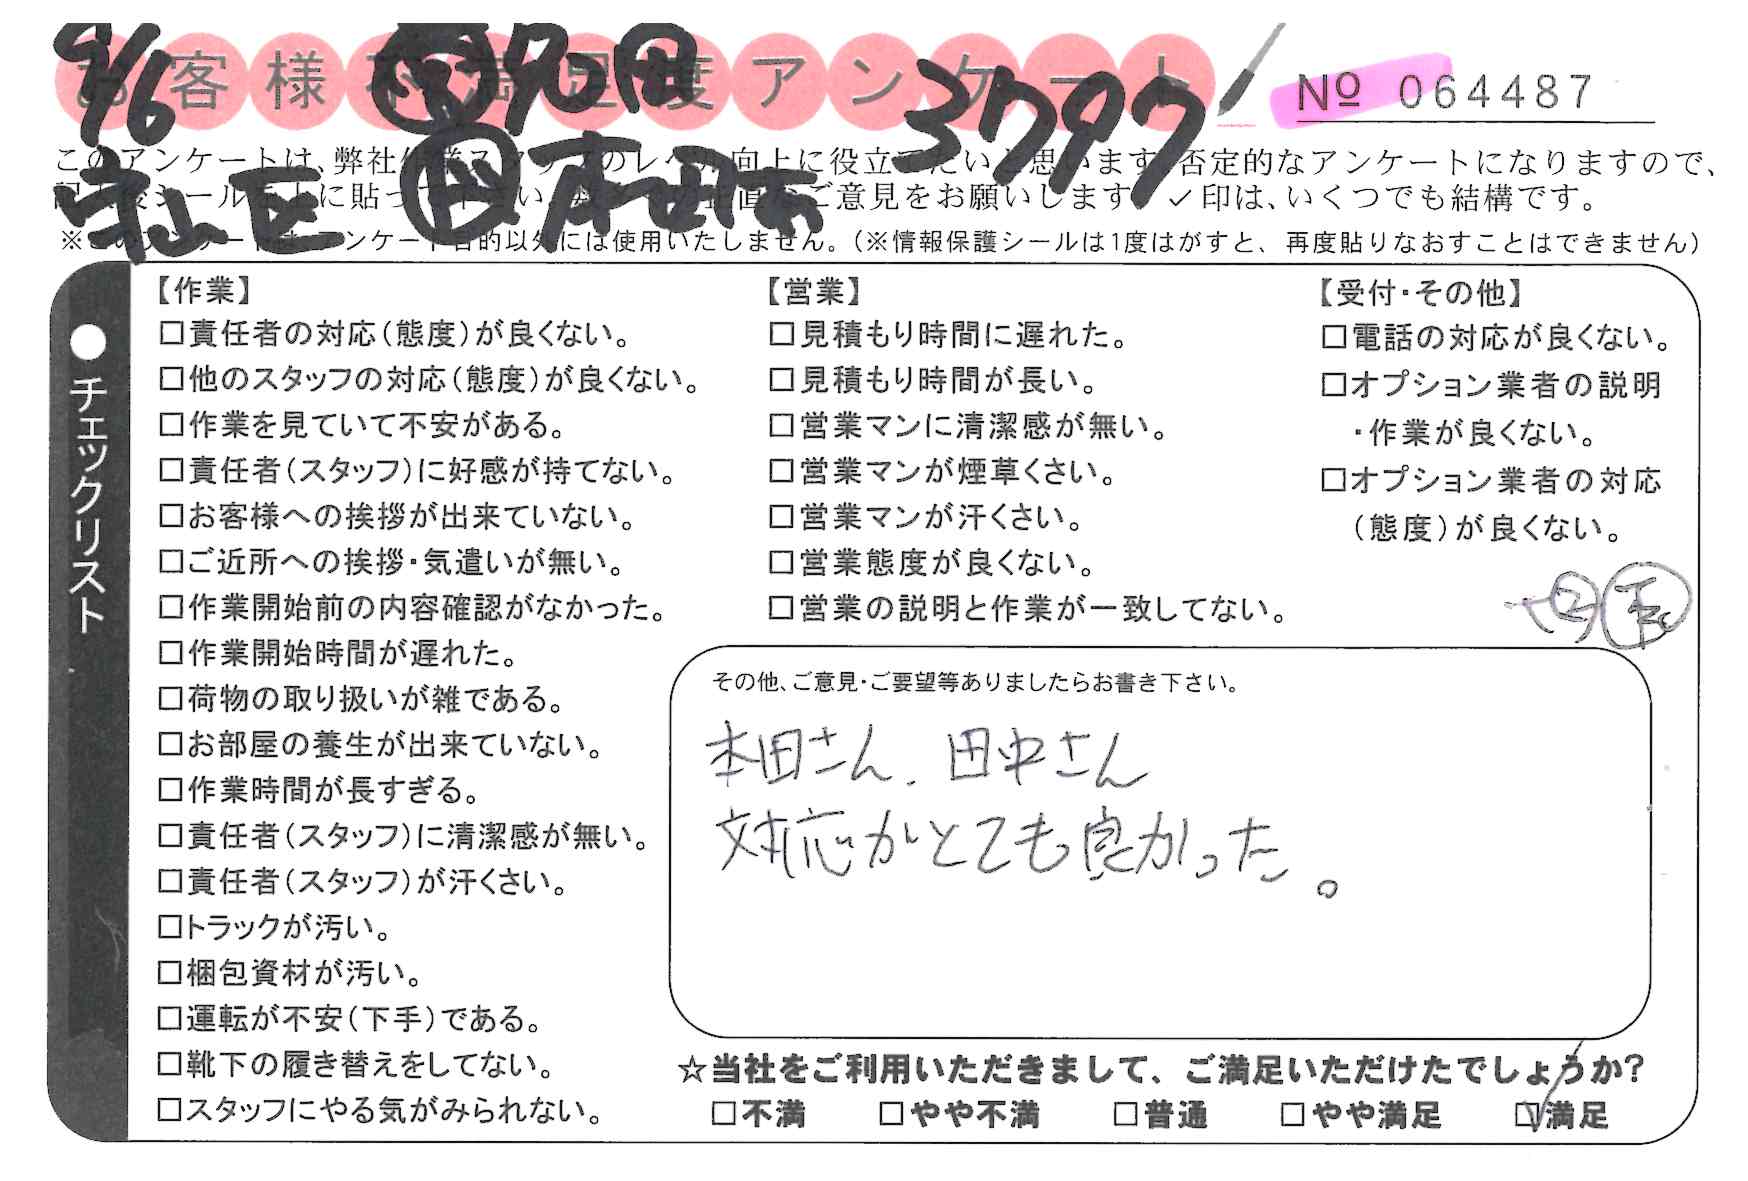 9/6
3797
守山区
本田
お客様不満足度アンケート
No 064487
このアンケートは、弊社作業スタッフのレベル向上に役立てたいと思います。否定的なアンケートになりますので、
に貼って下さい。ご意見をお願いします。✓印は、いくつでも結構です。
※このアンケートは、アンケート目的以外には使用いたしません。(※情報保護シールは1度はがすと、再度貼りなおすことはできません)
●チェックリスト
【作業】
□責任者の対応(態度)が良くない。
□他のスタッフの対応(態度)が良くない。
□作業を見ていて不安がある。
□責任者(スタッフ)に好感が持てない。
□お客様への挨拶が出来ていない。
□ご近所への挨拶・気遣いが無い。
□作業開始前の内容確認がなかった。
□作業開始時間が遅れた。
□荷物の取り扱いが雑である。
□お部屋の養生が出来ていない。
□作業時間が長すぎる。
□責任者(スタッフ)に清潔感が無い。
□責任者(スタッフ)が汗くさい。
□トラックが汚い。
□梱包資材が汚い。
□運転が不安(下手)である。
□靴下の履き替えをしてない。
□スタッフにやる気がみられない。
【営業】
□見積もり時間に遅れた。
□見積もり時間が長い。
□営業マンに清潔感が無い。
□営業マンが煙草くさい。
□営業マンが汗くさい。
□営業態度が良くない。
□営業の説明と作業が一致してない。
【受付・その他】
□電話の対応が良くない。
□オプション業者の説明
・作業が良くない。
□オプション業者の対応
(態度)が良くない。
その他、ご意見・ご要望等ありましたらお書き下さい。
本田さん、田中さん
対応がとても良かった。
☆当社をご利用いただきまして、ご満足いただけたでしょうか?
□不満 □やや不満 □普通 □やや満足 ☑満足